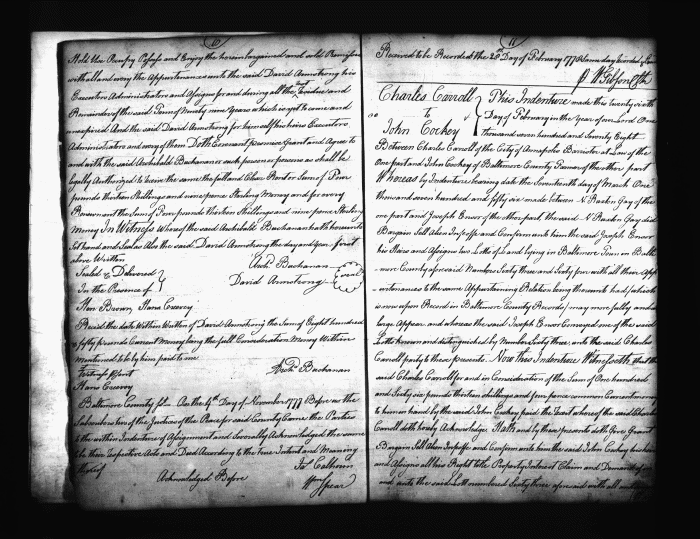 Hold Use Occupy Possess and Enjoy the herein bargained and sold Premisses
with all and every the Appurtenances unto the said David Armstrong his
Executors Administrators and Assigns for and during all the Residue and
Remainder of the said Term of Ninety nine Years which is yet to come and
unexpired And the said David Armstrong for himself his heirs Executors
Administrators and every of them Doth Covenant promise Grant and Agree to
and with the said Archibald Buchanan or such person or persons as shall be
legally Authorized to receive the same the full and Clear Rent or Sum of Two
pounds thirteen Shillings and nine pence Sterling Money and for every
Money In Witness whereof the said Archibald Buchanan hath hereunto
Set hand and Seal as Also the said David Armstrong the day and Year first
above Written
Sealed & Delivered
In the Presence of
Archd Buchanan
David Armstrong
Seal
Recd the date Within Written of David Armstrong the Sum of Eight hundred
& fifty pounds Current Money being the full Consideration Money Within
mentioned to be by him paid to me
Archd Buchanan
Baltimore County Sct. On the 4th Day of November 1777 Before us the
Subscribers two of the Justices of the Peace for said County Came the Parties
to the within Indenture of Assignment and Severally Acknowledged the same
to be their respective Acts and Deed According to the true Intent and Meaning
thereof
Acknowledged Before
Ja. Calhoun
Wm Spear
11
Received to be Recorded the 28th Day of February 1778 Same day recorded &
Wm Gibson Clk
Charles Carroll
to
John Cockey
This Indenture made this twenty sixth
Day of February in the Year of our Lord One
thousand seven hundred and Seventy Eight
Between Charles Carroll of the City of Annapolis Barrister at Law of the
One part and John Cockey of Baltimore County Farmer of the other part
Whereas by Indenture bearing date the Seventeenth day of March One
thousand seven hundred and fifty six made between N. Ruxton Gay of the
one part and Joseph Ensor of the other part, the said N. Ruxton Gay did
Bargain Sell Alien Infeoffe and Confirm unto him the said Joseph Ensor
his Heirs and Assigns two Lotts of Land lying in Baltimore Town in Balti-
-more County aforesaid Number Sixty three and Sixty four with all their App-
-urtenances to the same Appertaining Relation being thereunto had (which
is now upon Record in Baltimore County Records) may more fully and at
large Appear, and whereas the said Joseph Ensor Conveyed one of the said
Lotts known and distinguished by Number Sixty three, unto the said Charles
Carroll party to these presents. Now this Indenture Witnesseth, that the
said Charles Carroll for and in Consideration of the Sum of One hundred
and Sixty six pounds thirteen Shillings and four pence common Current money
to him in hand by the said John Cockey paid the Receipt whereof the said Charles
Carroll doth hereby Acknowledge Hath and by these presents doth Give Grant
Bargain Sell Alien Infeoffe and Confirm unto him the said John Cockey his heirs
and Assigns all his Right title Property Interest Claim and Demand of in
and unto the said Lott numbered Sixty three aforesaid with all and